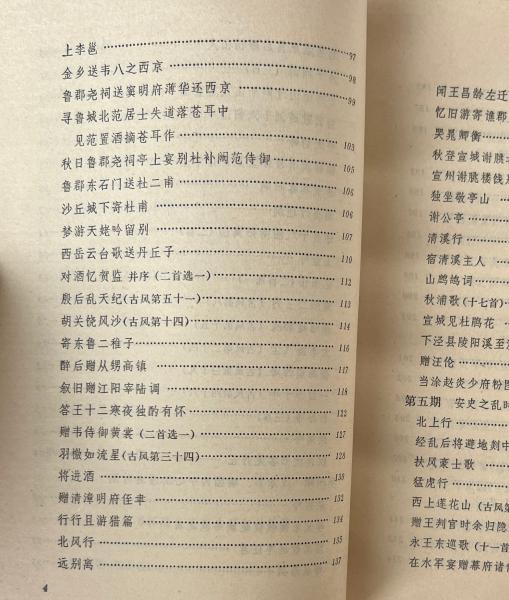 上李邕……97
金乡送韦八之西京……98
鲁郡尧祠送窦明府薄华还西京……99
寻鲁城北范居士失道落苍耳中
见范置酒摘苍耳作……103
秋日鲁郡尧祠亭上宴别杜补阙范侍御……105
鲁郡东石门送杜二甫……105
沙丘城下寄杜甫……106
梦游天姥吟留别……107
西岳云台歌送丹丘子……110
对酒忆贺监 并序（二首选一）……112
殷后乱天纪（古风第五十一）……113
胡关饶风沙（古风第十四）……114
寄东鲁二稚子……116
醉后赠从甥高镇……117
叙旧赠江阳宰陆调……118
答王十二寒夜独酌有怀……122
赠韦侍御黄裳（二首选一）……127
羽檄如流星（古风第三十四）……128
将进酒……130
赠清漳明府侄聿……132
行行且游猎篇……134
北风行……135
远别离……137
4
闻王昌龄左迁
忆旧游寄谯郡
哭晁卿衡
秋登宣城谢朓
宣州谢朓楼饯
独坐敬亭山
谢公亭
清溪行
宿清溪主人
山鹧鸪词
秋浦歌（十七首）
宣城见杜鹃花
下泾县陵阳溪至
赠汪伦
当涂赵炎少府粉图
第五期 安史之乱时
北上行
经乱后将避地剡中
扶风豪士歌
猛虎行
西上莲花山（古风第
赠王判官时余归隐
永王东巡歌（十一首
在水军宴赠幕府诸侍